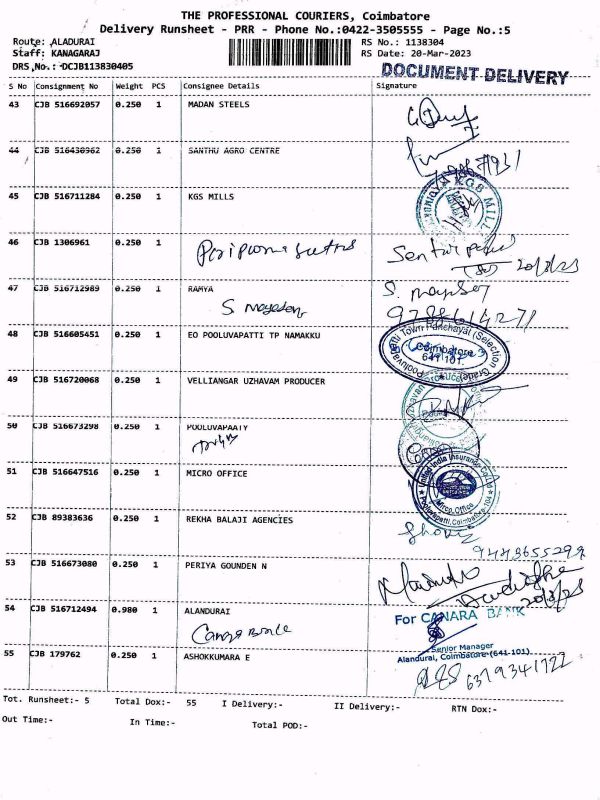 THE PROFESSIONAL COURIERS, Coimbatore
Delivery Runsheet - PRR - Phone No.:0422-3505555 - Page No.:5
Route: ALADURAI RS No.: 1138304
Staff: KANAGARAJ RS Date: 20-Mar-2023
DRS No.: DCJB113830405 DOCUMENT DELIVERY
S No Consignment No Weight PCS Consignee Details Signature
43 CJB 516692057 0.250 1 MADAN STEELS
44 CJB 516430962 0.250 1 SANTHU AGRO CENTRE
45 CJB 516711284 0.250 1 KGS MILLS
KGS MILL
46 CJB 1306961 0.250 1
20/3/23
47 CJB 516712989 0.250 1 RAMYA
48 CJB 516605451 0.250 1 EO POOLUVAPATTI TP NAMAKKU
Pooluvapatti Town Panchayat (Selection Grade)
Coimbatore
641 101
49 CJB 516720068 0.250 1 VELLIANGAR UZHAVAM PRODUCER
50 CJB 516673298 0.250 1 POOLUVAPAATY
51 CJB 516647516 0.250 1 MICRO OFFICE
United India Insurance Co. Ltd
Micro Office
Pooluvapatti, Coimbatore
52 CJB 89383636 0.250 1 REKHA BALAJI AGENCIES
53 CJB 516673080 0.250 1 PERIYA GOUNDEN N
20/3/23
54 CJB 516712494 0.980 1 ALANDURAI
For CANARA BANK
Senior Manager
Alandurai, Coimbatore (641-101)
55 CJB 179762 0.250 1 ASHOKKUMARA E
6379341722
Tot. Runsheet:- 5 Total Dox:- 55 I Delivery:- II Delivery:- RTN Dox:-
Out Time:- In Time:- Total POD:-